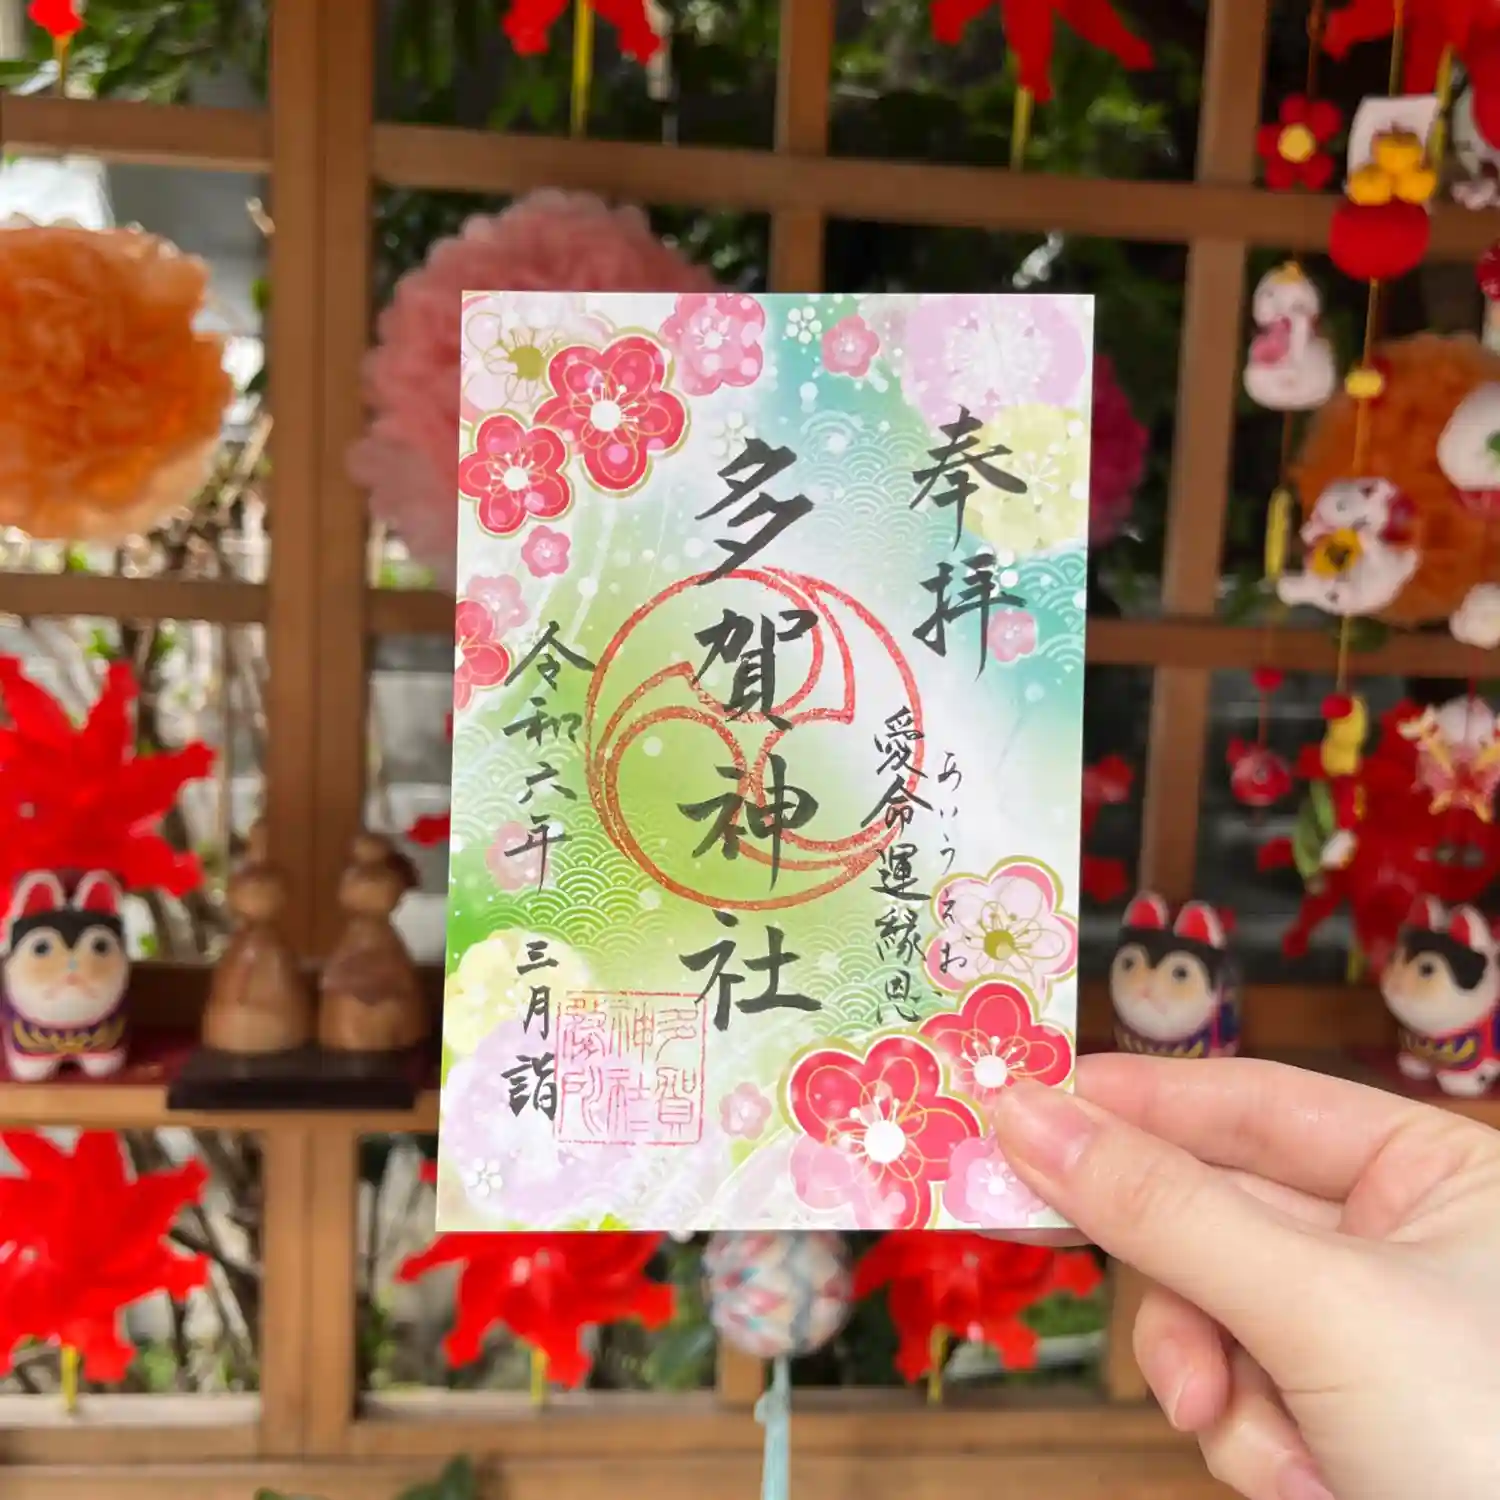 奉拝
愛命運縁恩
あいうえお
多賀神社
令和六年 三月 詣
多賀
神社